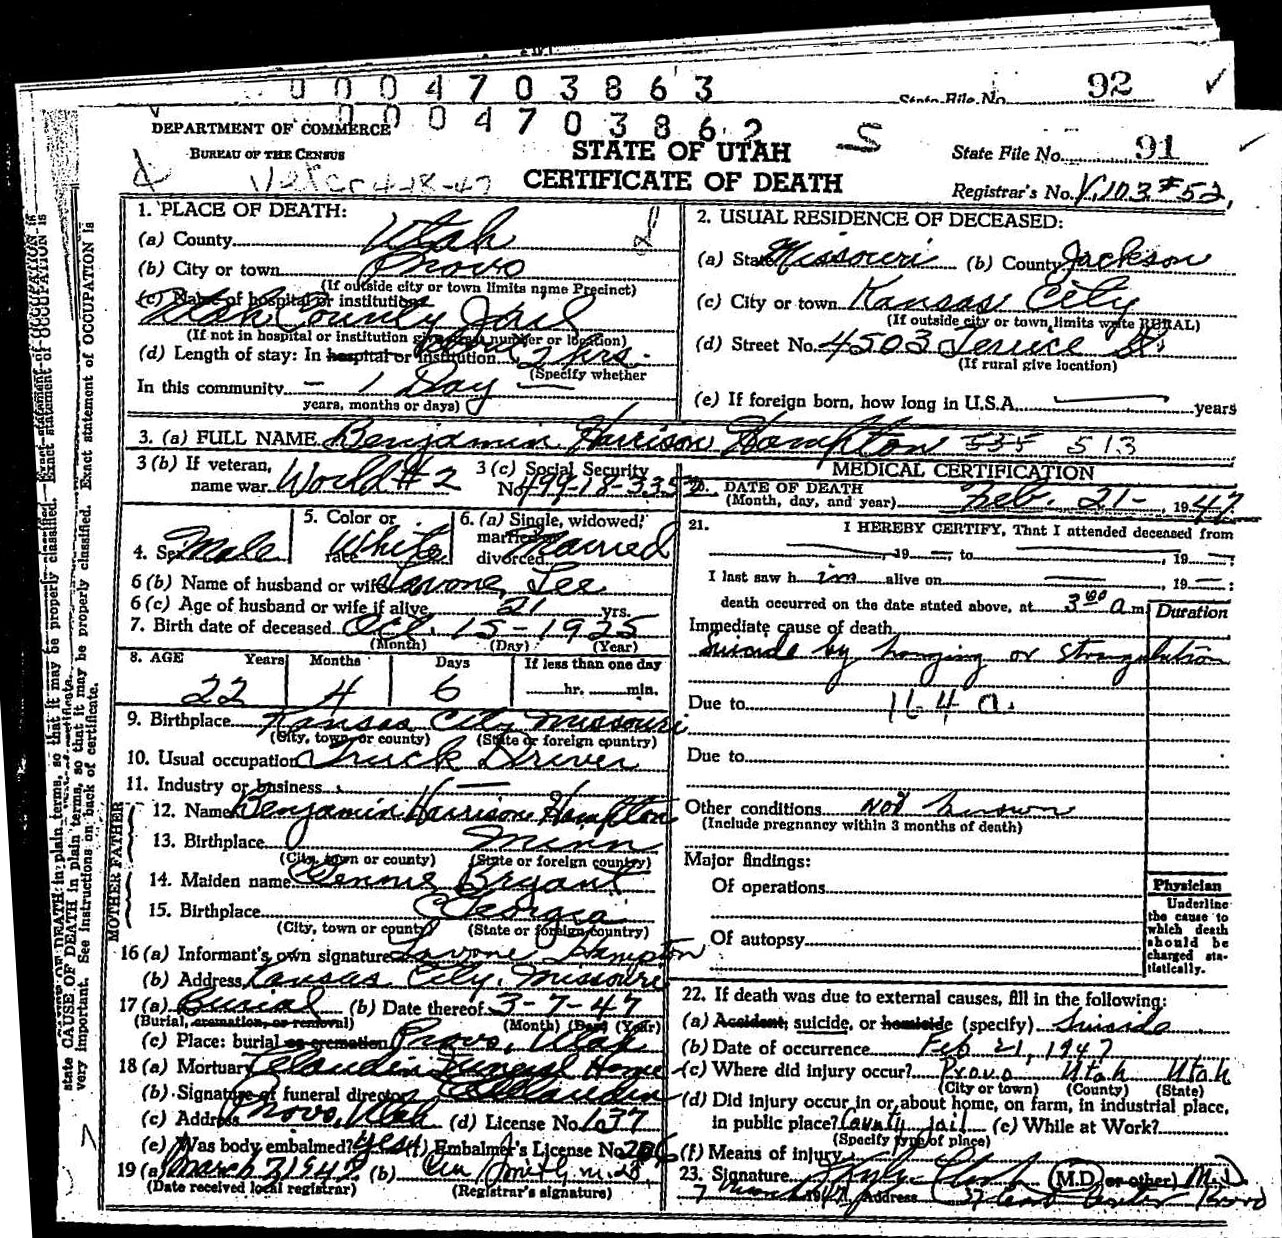 0 0 0 4 7 0 3 8 6 3
State File No. 92
0 0 0 4 7 0 3 8 6 2
DEPARTMENT OF COMMERCE
BUREAU OF THE CENSUS
STATE OF UTAH
CERTIFICATE OF DEATH
State File No. 91
Registrar's No. V.103 #52
1. PLACE OF DEATH:
(a) County Utah
(b) City or town Provo
(If outside city or town limits name Precinct)
(c) Name of hospital or institution
Utah County Jail
(If not in hospital or institution give street number or location)
(d) Length of stay: In hospital or institution 2 hrs.
(Specify whether
In this community — 1 Day —
years, months or days)
2. USUAL RESIDENCE OF DECEASED:
(a) State Missouri (b) County Jackson
(c) City or town Kansas City
(If outside city or town limits write RURAL)
(d) Street No. 4503 St.
(If rural give location)
(e) If foreign born, how long in U.S.A. years
3. (a) FULL NAME Benjamin Harrison Hampton 535 513
3 (b) If veteran, name war World # 2
3 (c) Social Security No. 499-18-335
4. Sex Male
5. Color or race White
6. (a) Single, widowed, married or divorced Married
6 (b) Name of husband or wife Lavone Lee
6 (c) Age of husband or wife if alive 21 yrs.
7. Birth date of deceased Oct. 15-1925
(Month) (Day) (Year)
8. AGE Years Months Days If less than one day
22 4 6 hr. min.
9. Birthplace Kansas City Missouri
(City, town or county) (State or foreign country)
10. Usual occupation Truck Driver
11. Industry or business —
FATHER
12. Name Benjamin Harrison Hampton
13. Birthplace Minn
(City, town or county) (State or foreign country)
MOTHER
14. Maiden name Bryant
15. Birthplace Georgia
(City, town or county) (State or foreign country)
16 (a) Informant's own signature Lavone Hampton
(b) Address Kansas City, Missouri
17 (a) Burial (b) Date thereof 3-7-47
(Burial, cremation, or removal) (Month) (Day) (Year)
(c) Place: burial or cremation Provo, Utah
18 (a) Mortuary Claudin Funeral Home
(b) Signature of funeral director Claudin
(c) Address Provo, Utah (d) License No. 137
(e) Was body embalmed? yes (f) Embalmer's License No. 206
19 (a) March 7 1947 (b)
(Date received local registrar) (Registrar's signature)
MEDICAL CERTIFICATION
20. DATE OF DEATH
(Month, day, and year) Feb. 21- 1947
21. I HEREBY CERTIFY, That I attended deceased from
, 19 — ; to , 19 — ;
I last saw h im alive on , 19 — ;
death occurred on the date stated above, at 3 00 a m.
Duration
Immediate cause of death
Suicide by hanging or strangulation
Due to 164 a.
Due to
Other conditions not known
(Include pregnancy within 3 months of death)
Major findings:
Of operations
Of autopsy
Physician
Underline the cause to which death should be charged statistically.
22. If death was due to external causes, fill in the following:
(a) Accident, suicide, or homicide (specify) Suicide
(b) Date of occurrence Feb 21, 1947
(c) Where did injury occur? Provo Utah Utah
(City or town) (County) (State)
(d) Did injury occur in or about home, on farm, in industrial place,
in public place? County jail (e) While at Work?
(Specify type of place)
(f) Means of injury
23. Signature (M.D. or other) M.D
7 March 1947 Address 37 Center Provo
state CAUSE OF DEATH in plain terms, so that it may be properly classified. Exact statement of OCCUPATION is
very important. See instructions on back of certificate.